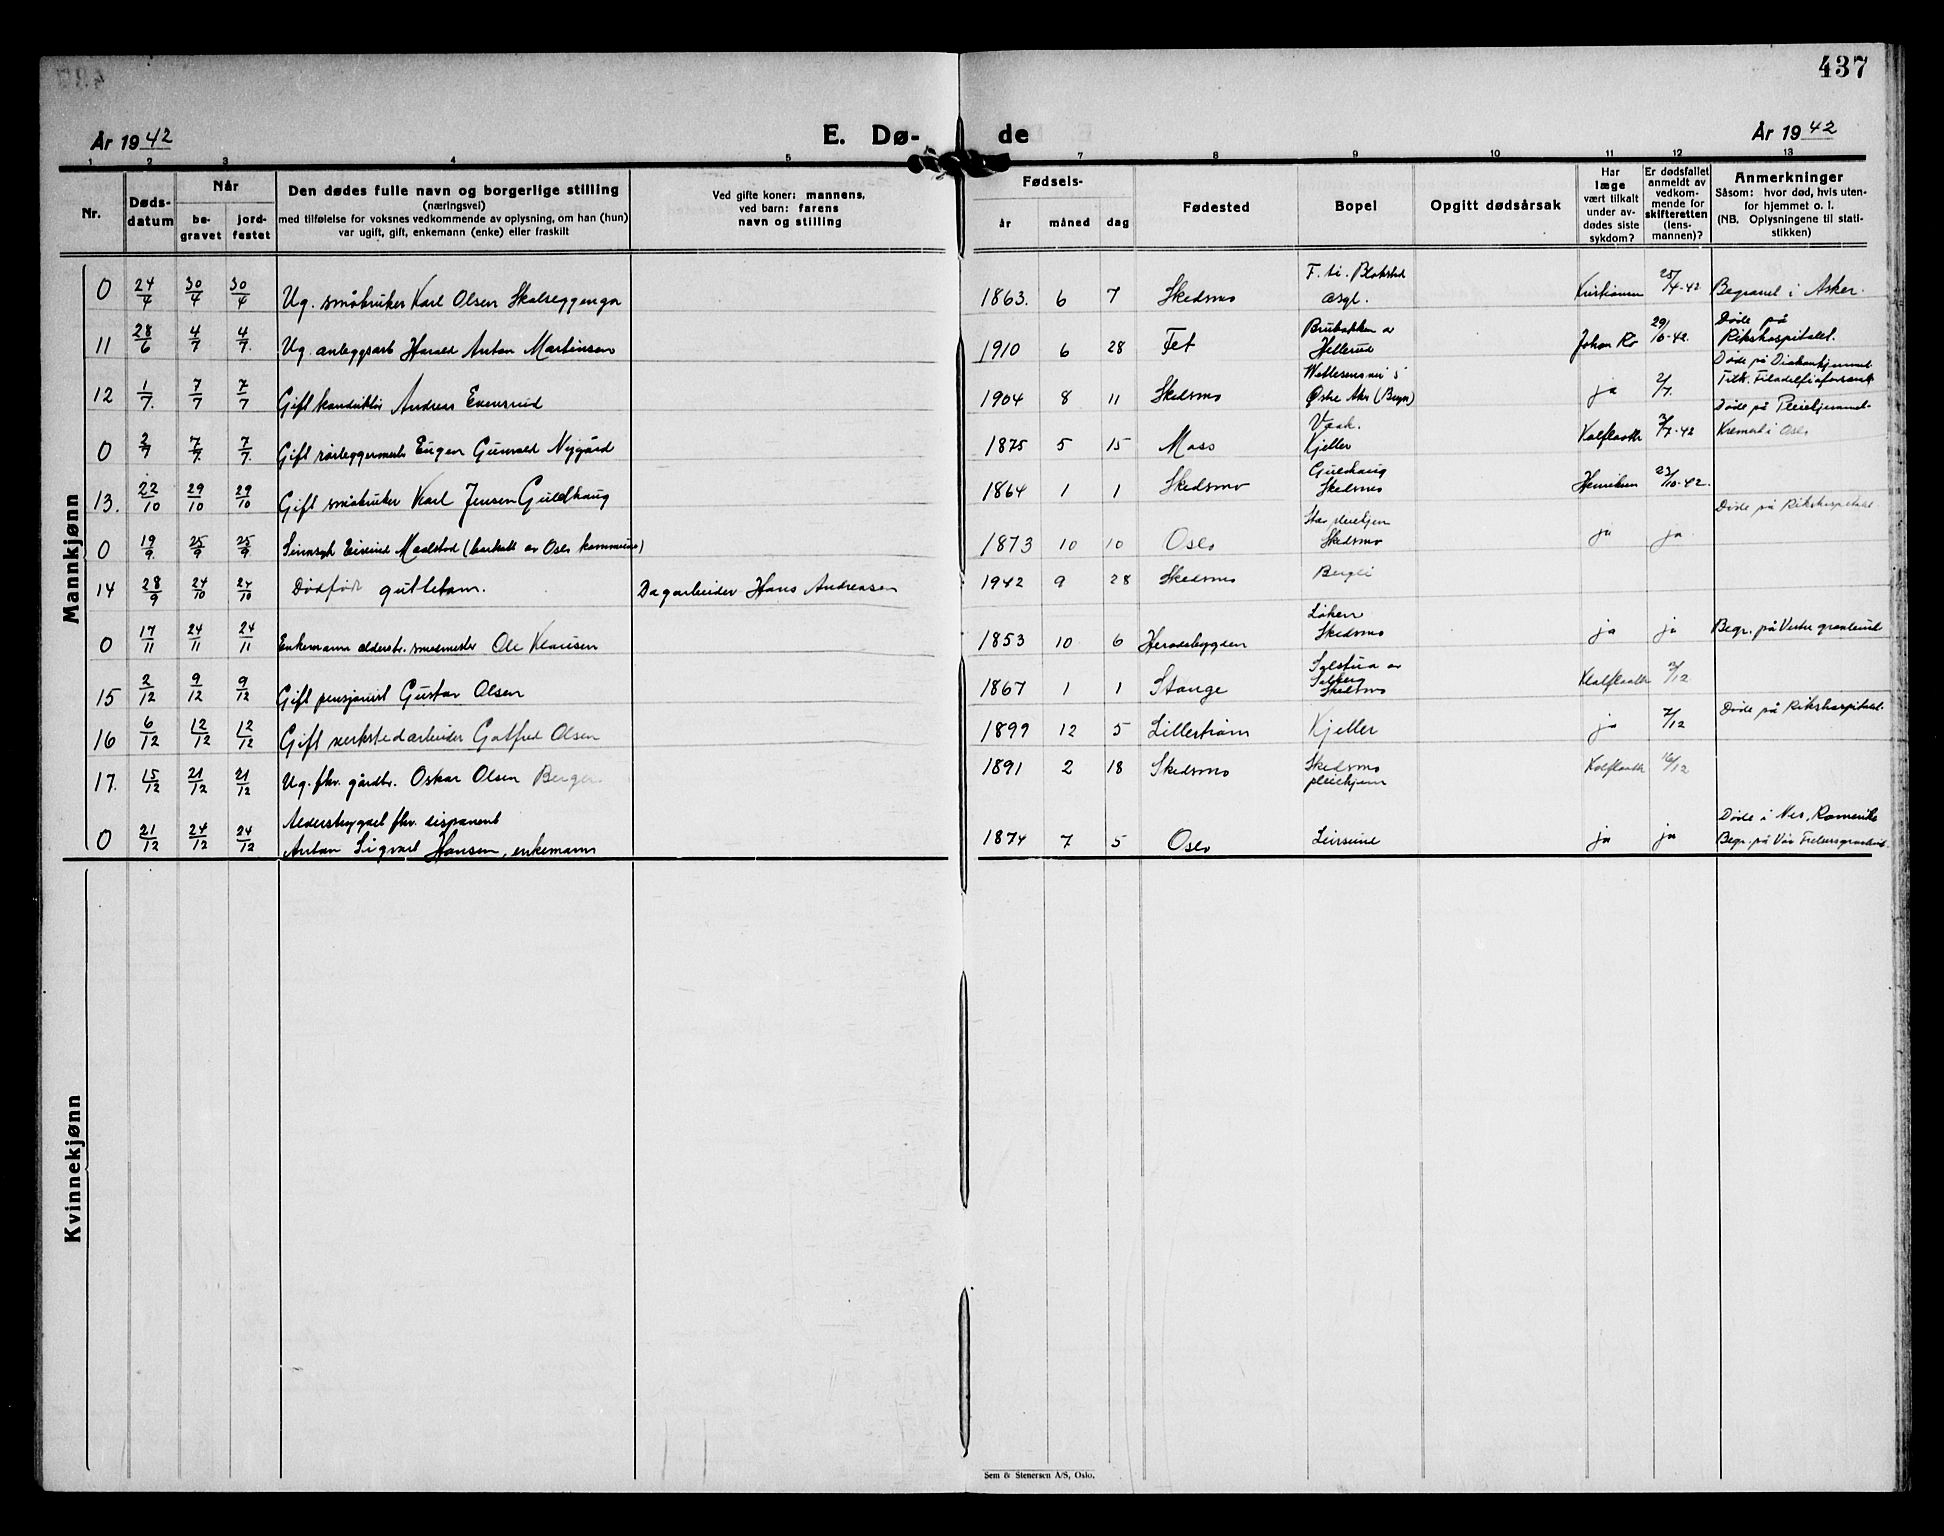 437
År 1942
E. Dø-
de
År 1942
1 2 3 4 5 7 8 9 10 11 12 13
Nr.
Døds-
datum
Når
be-
gravet
jord-
festet
Den dødes fulle navn og borgerlige stilling
(næringsvei)
med tilføielse for voksnes vedkommende av oplysning, om han (hun)
var ugift, gift, enkemann (enke) eller fraskilt
Ved gifte koner: mannens,
ved barn: farens
navn og stilling
Fødsels-
år måned dag
Fødested
Bopel
Opgitt dødsårsak
Har
læge
vært tilkalt
under av-
dødes siste
sykdom?
Er dødsfallet
anmeldt av
vedkom-
mende for
skifteretten
(lens-
mannen)?
Anmerkninger
Såsom: hvor død, hvis uten-
for hjemmet o. l.
(NB. Oplysningene til stati-
stikken)
Mannkjønn
0 24/4 30/4 30/4 Ug. småbruker Karl Olsen 1863. 6 7 Skedsmo asyl. Kristiansen 25/4-42 Begravet i Asker.
11 28/6 4/7 4/7. Ug. anleggsarb Harald Anton Martinsen 1910 6 28 Fet Brubakken Hellerud Johan 29/10-42. Døde på Rikshospitalet.
12 1/7. 7/7 7/7 Gift konduktør Andreas Evensrud 1904 8 11 Skedsmo Østre Akr (Begn) ja 2/7. Døde på Diakonhjemmet
0 2/7 7/7. 7/7. Gift rørleggermestr Eugen Gunvald Nygård 1875 5 15 Moss Kjeller Kalflaath 3/7-42 Døde på Pleiehjemmet Kremert i Oslo
13. 22/10 29/10 29/10 Gift småbruker Karl Jensen Guldhaug 1864 1 1 Skedsmo Guldhaug Skedsmo Henriksen 23/10-42. Døde på Rikshospitalet.
0 19/9. 25/9 25/9. Sinnsyk Eivind Maalstad ( av Oslo kommune) 1873 10 10 Oslo Skedsmo ja ja
14 28/9 24/10 24/10 Dødfødt guttebarn. Dagarbeider Hans Andreasen 1942 9 28 Skedsmo Bergli
0 17/11 24/11 24/11 Enkemann alderstr. smedmester Ole Klausen 1853 10 6 Løken Skedsmo ja ja Begr. på Vestre gravlund
15 2/12 9/12 9/12 Gift pensjonist Gustav Olsen 1867 1 1 Stange Sylstua av Solberg Skedsmo Kalflaath 2/12
16 6/12 12/12 12/12 Gift verkstedarbeider Gotfred Olsen 1899 12 5 Lillestrøm Kjeller ja 7/12 Døde på Rikshospitalet.
17. 15/12 21/12 21/12 Ug. fhv. gårdbr. Oskar Olsen Berger. 1891 2 18 Skedsmo Skedsmo pleiehjem Kalflaath 16/12
0 21/12 24/12 24/12 Alderstrygdet fhv. disponent
Anton Sigvart Hansen, enkemann 1874 7 5 Oslo Leirsund ja ja Døde i Nes, Romerike
Begr. på Vår Frelsers gravlund.
Kvinnekjønn
Sem & Stenersen A/S, Oslo.